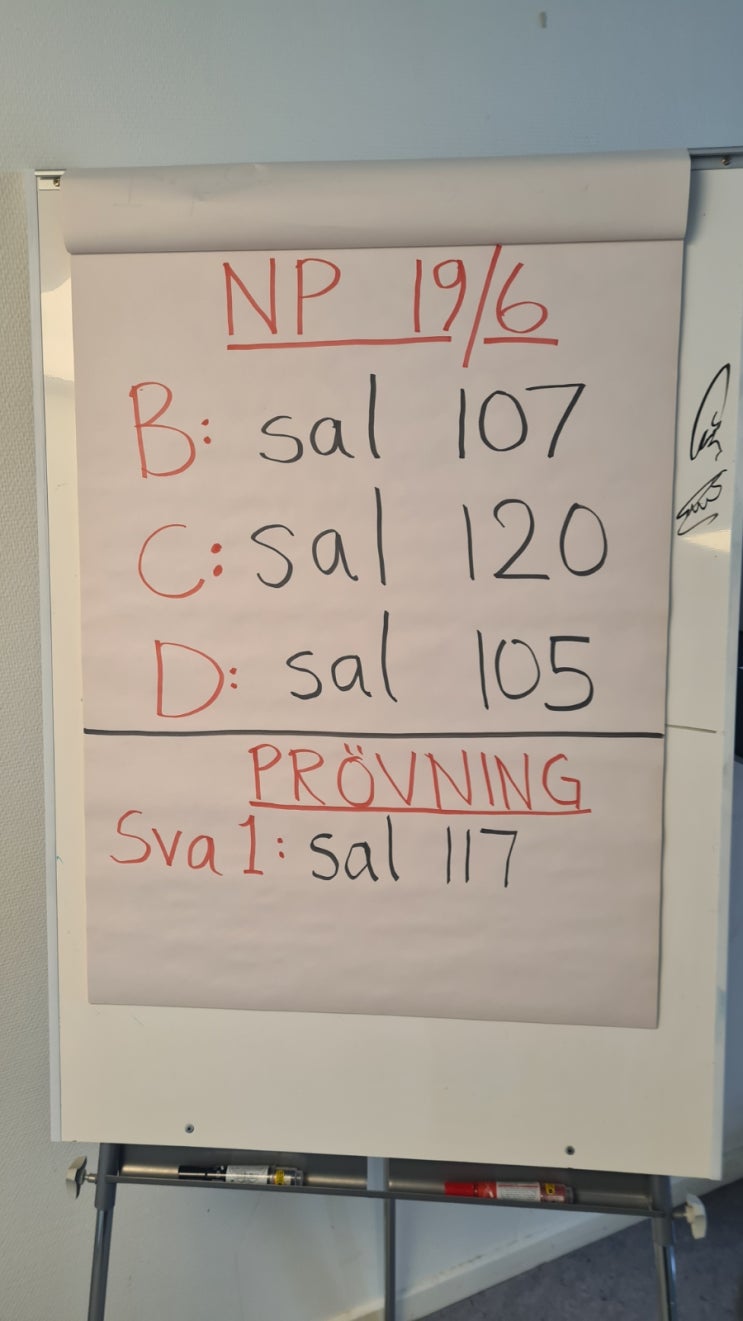 NP 19/6
B: sal 107
C: sal 120
D: sal 105
PRÖVNING
Sva 1: sal 117